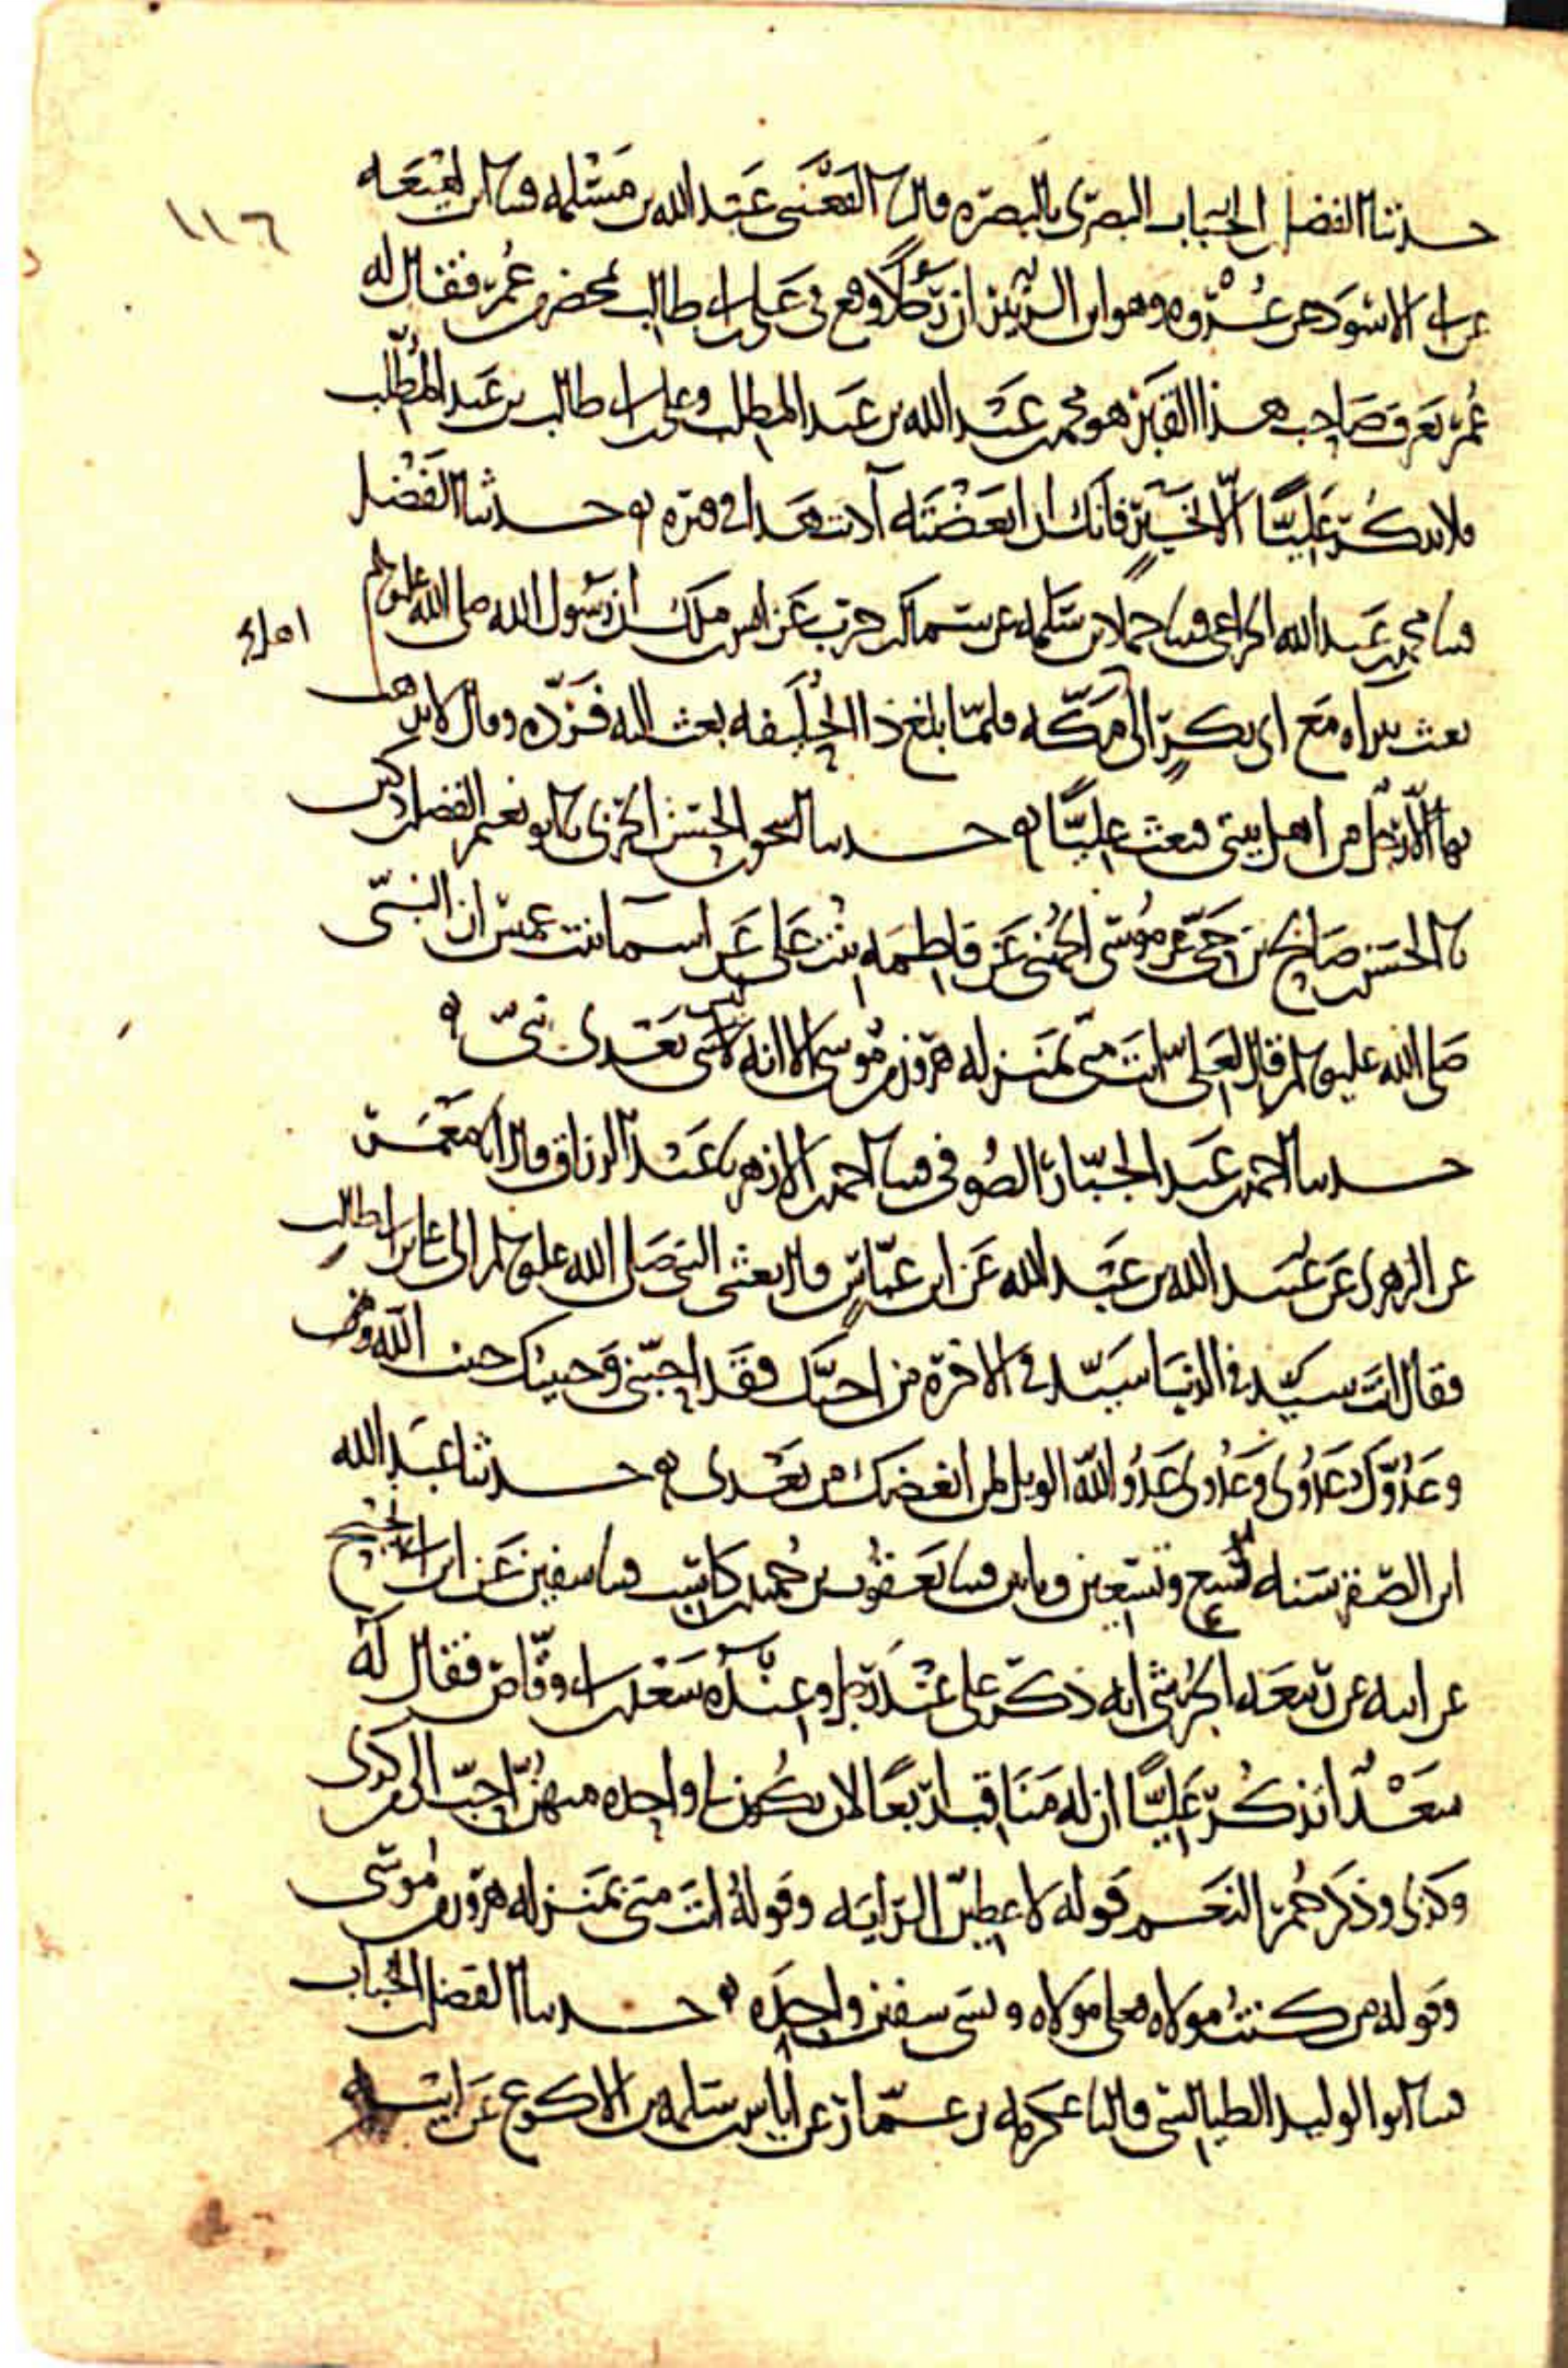 ١١٦
حدثنا الفضل بن الحباب البصرى بالبصره قال نا القعنبى عبد الله بن مسلمه قثنا ابن لهيعه
عن ابى الاسود عن عروه وهو ابن الزبير ان رجلا وقع فى على بن ابى طالب بمحضر من عمر فقال له
عمر تعرف صاحب هذا القبر هو محمد بن عبد الله بن عبد المطلب وعلى بن ابى طالب بن عبد المطلب
فلا تذكر عليا الا بخير فانك ان ابغضته آذيت هذا فى قبره ه حدثنا الفضل
قثنا محمد بن عبد الله الخزاعى قثنا حماد بن سلمه عن سماك بن حرب عن انس بن ملك ان رسول الله صلى الله عليه وسلم
بعث ببراه مع ابى بكر الى مكه فلما بلغ ذا الحليفه بعث اليه فرده وقال لا يذهب
بها الا رجل من اهل بيتى فبعث عليا ه حدثنا اسحق بن الحسن الحربى نا ابو نعيم الفضل بن دكين
نا الحسن بن صالح بن حى عن موسى الجهنى عن فاطمه بنت على عن اسما بنت عميس ان النبى
صلى الله عليه وسلم قال لعلى انت منى بمنزله هرون من موسى الا انه ليس بعدى نبى ه
حدثنا احمد بن عبد الجبار الصوفى قثنا احمد بن الازهر نا عبد الرزاق قال انا معمر
عن الزهرى عن عبيد الله بن عبد الله عن ابن عباس قال بعثنى النبى صلى الله عليه وسلم الى على بن ابى طالب
فقال انت سيد فى الدنيا سيد فى الاخره من احبك فقد احبنى وحبيبك حبيب الله
وعدوك عدوى وعدوى عدو الله الويل لمن ابغضك من بعدى ه حدثنا عبد الله
ابن الصقر سنه تسع وتسعين ومايتين قثنا يعقوب بن حميد بن كاسب قثنا سفين عن ابن ابى نجيح
عن ابيه عن ربيعه الجرشى انه ذكر على عند رجل وعنده سعد بن ابى وقاص فقال له
سعد اتذكر عليا ان له مناقب اربعا لان يكون لى واحده منهن احب الى من كذى
وكذى وذكر حمر النعم قوله لاعطين الرايه وقوله انت منى بمنزله هرون من موسى
وقوله من كنت مولاه فعلى مولاه ونسى سفين واحده ه حدثنا الفضل بن الحباب
قثنا ابو الوليد الطيالسى قال نا عكرمه بن عمار عن اياس بن سلمه بن الاكوع عن ابيه